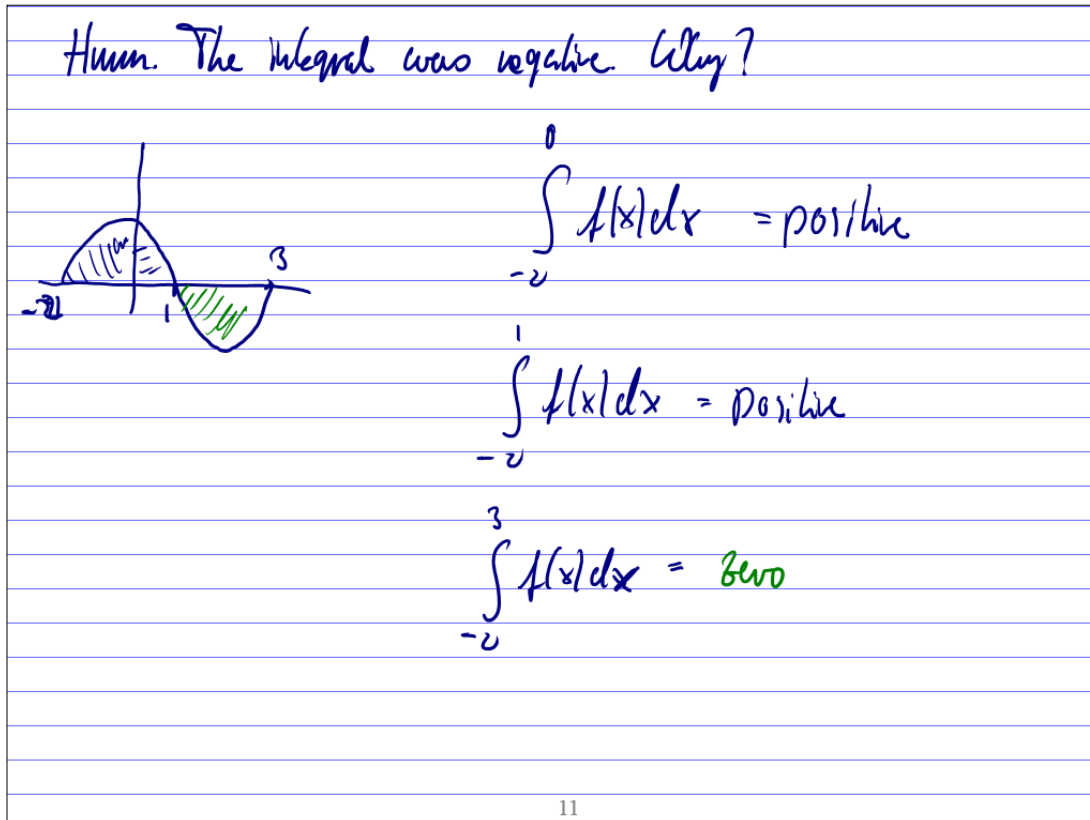 Hmm. The integral was negative. Why?
0
∫ f(x)dx = positive
-2
3
1
1
∫ f(x)dx = positive
-2
3
∫ f(x)dx = zero
-2
11